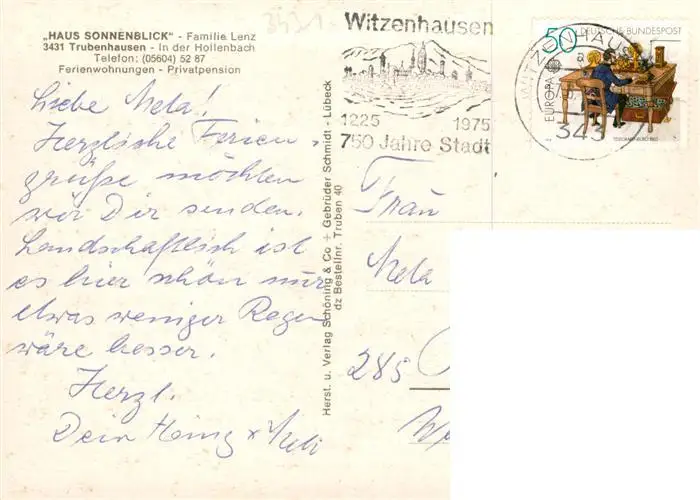 „HAUS SONNENBLICK" - Familie Lenz
3431 Trubenhausen - In der Hollenbach
Telefon: (05604) 52 87
Ferienwohnungen - Privatpension
Liebe Meta!
Herzliche Ferien-
grüße möchten
wir Dir senden.
Landschaftlich ist
es hier schön nur
etwas weniger Regen
wäre besser.
Herzl.
Dein Heinz
Herst. u. Verlag Schöning & Co + Gebrüder Schmidt - Lübeck
dz Bestellnr. Truben 40
3431
Witzenhausen
1225 1975
750 Jahre Stadt
WITZENHAUS
a
343
50 DEUTSCHE BUNDESPOST
EUROPA
Frau
Meta
285